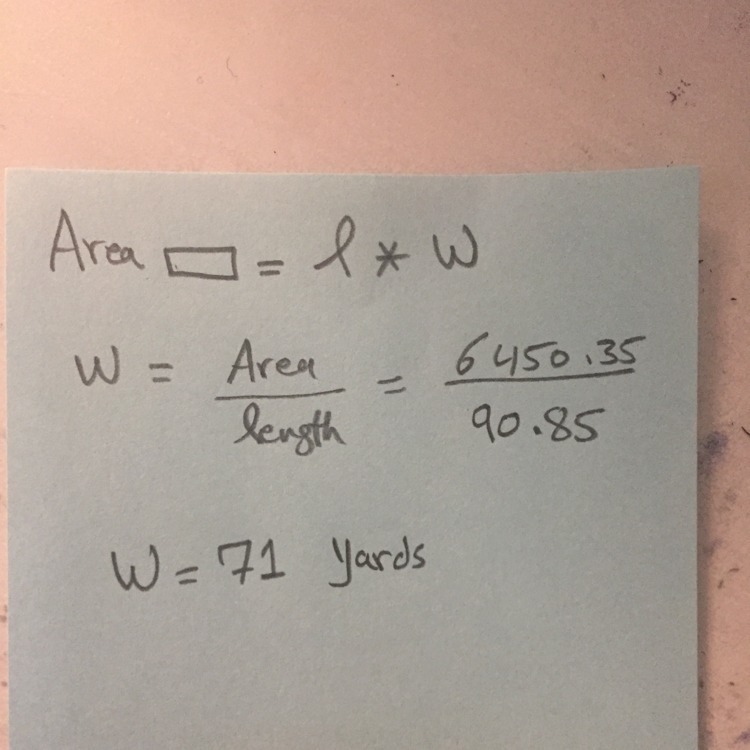 Area ▭ = l * W
W = Area / length = 6450.35 / 90.85
W = 71 yards